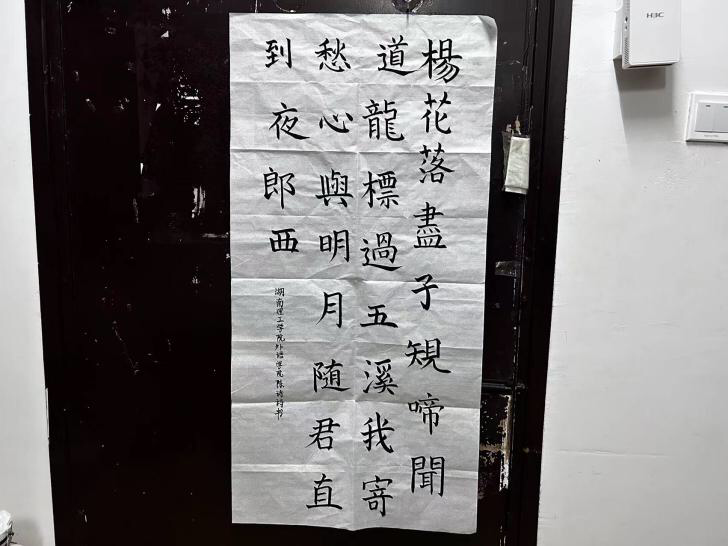 楊花落盡子規啼聞
道龍標過五溪我寄
愁心與明月随君直
到夜郎西
湖南理工学院外语学院陈诗诗书
H3C